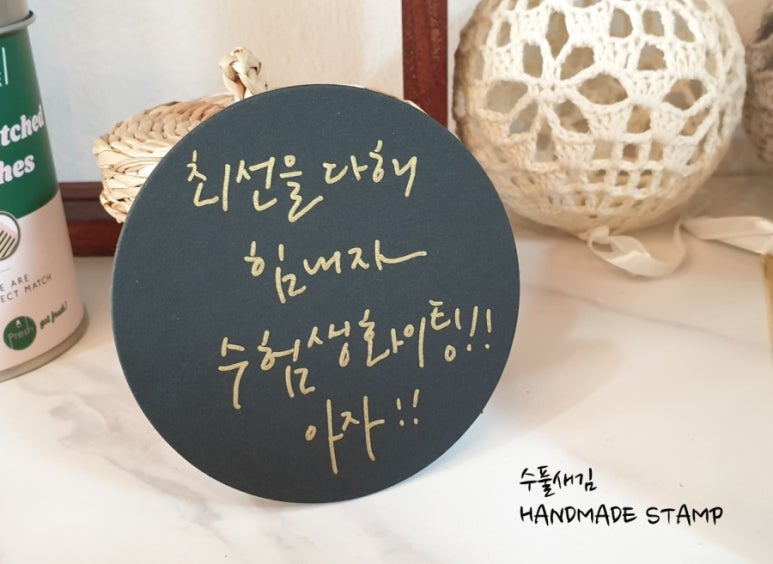 최선을 다해
힘내자
수험생화이팅!!
아자!!
tched
hes
E ARE
ECT MATCH
Fresh
get fresh!
수풀새김
HANDMADE STAMP